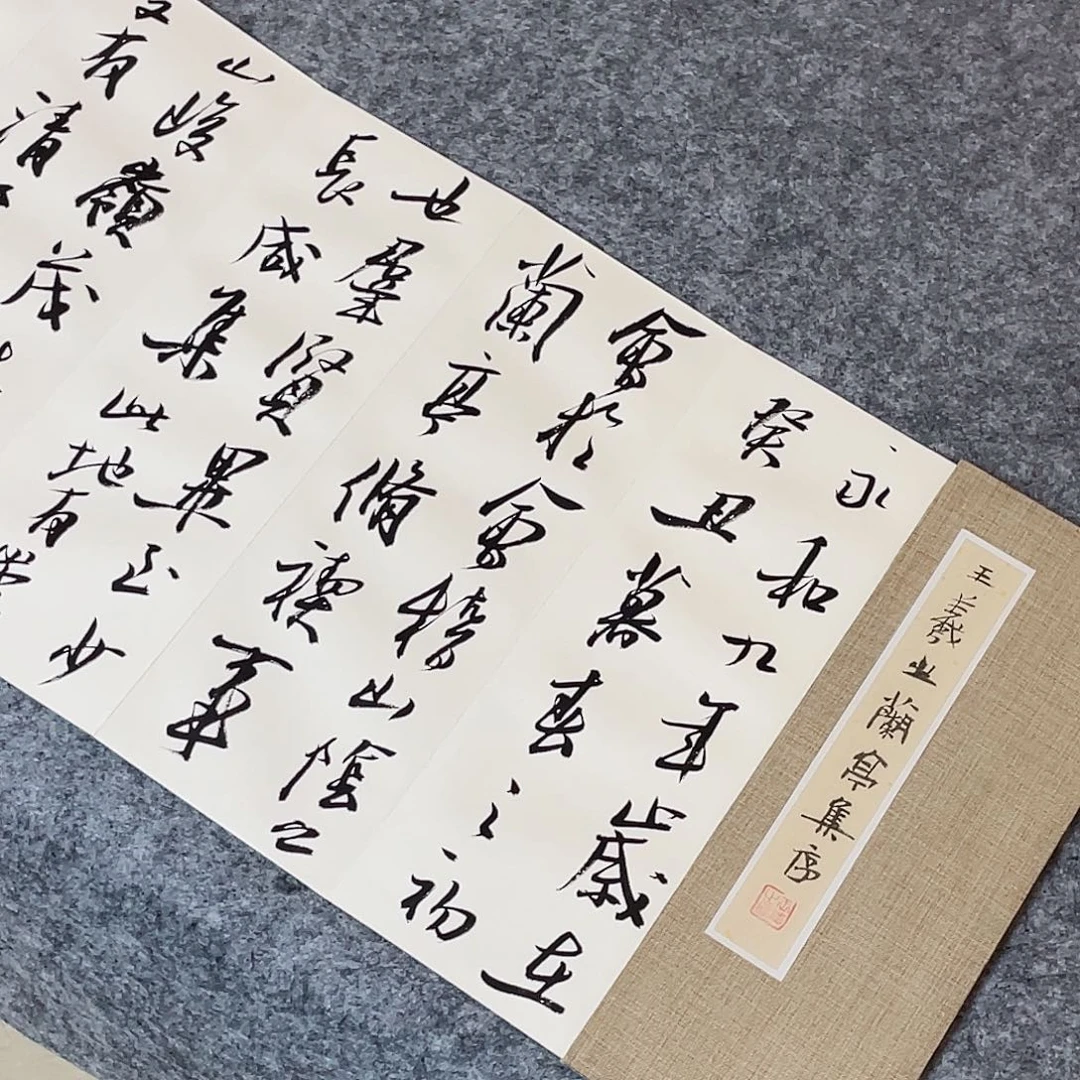 王羲之蘭亭集序
永和九年歲在
癸丑暮春之初
會於會稽山陰之
蘭亭脩禊事
也群賢畢至少
長咸集此地有
山峻嶺茂
有清